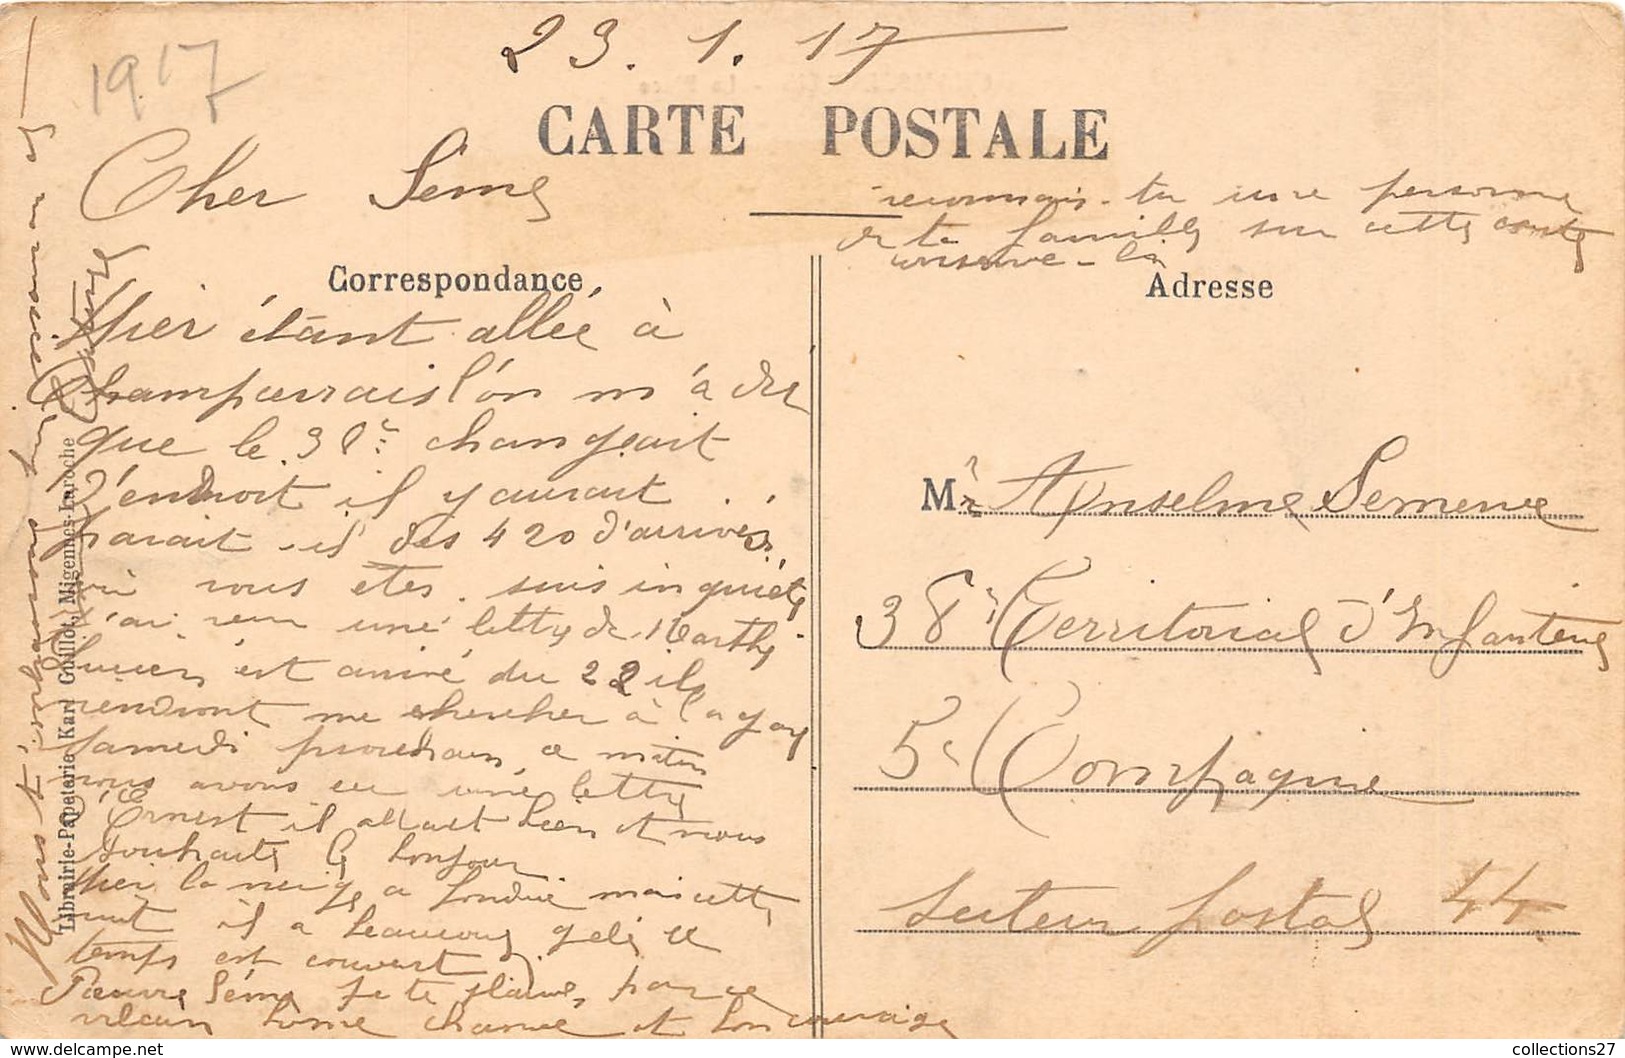 1917
23.1.17
CARTE POSTALE
Cher Séme
reconnais-tu une personne
de ta famille sur cette carte
conserve-la
Correspondance
Adresse
Hier étant allée à
l'on m'a dit
que le 38e changeait
d'endroit il y aurait
parait-il des 420 d'arrivés
où vous êtes. suis inquiète
J'ai reçu une lettre de Marthe
Lucien est arrivé du 22 ils
viendront me chercher à
samedi prochain ce matin
nous avons eu une lettre
d'Ernest il allait bien et nous
souhaite le bonjour
Hier la neige a fondue mais cette
nuit il a beaucoup gelé le
temps est couvert
Pauvre Séme je te plains, par ce
vilain tems et bon courage
Nous t'embrassons
Librairie-Papeterie Karl Guillot, Migennes-Laroche
Mr Anselme Semence
38e Territorial d'Infanterie
5e Compagnie
Secteur postal 44
collections27